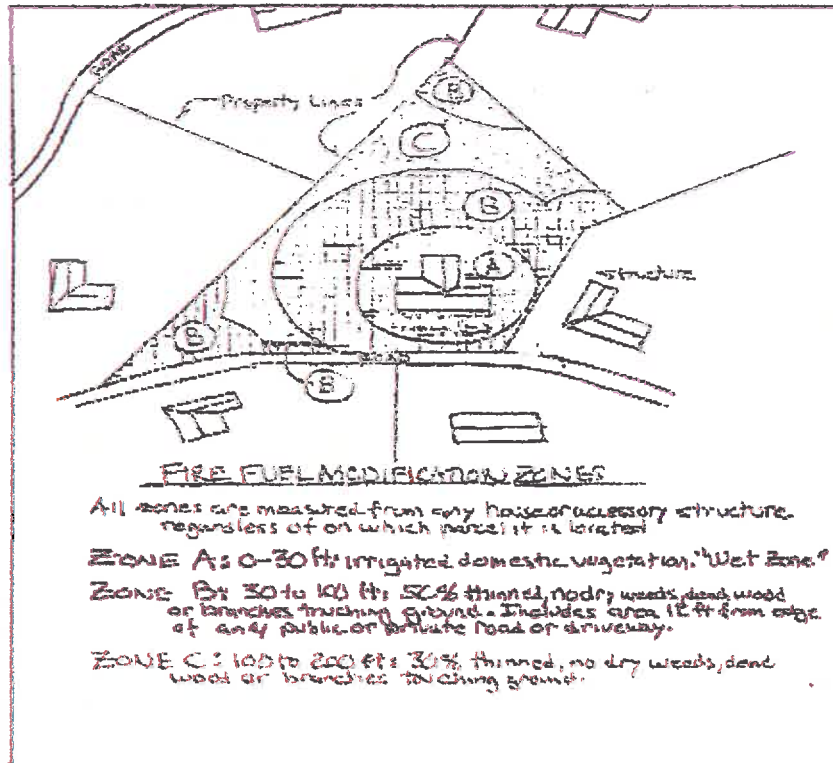 ROAD
Property Lines
B
C
B
A
structure
B
ROAD
B
FIRE FUEL MODIFICATION ZONES
All zones are measured from any house or accessory structure
regardless of on which parcel it is located
ZONE A: 0-30 ft: irrigated domestic vegetation. "Wet Zone"
ZONE B: 30 to 100 ft: 50% thinned, no dry weeds, dead wood
or branches touching ground. Includes area 12 ft from edge
of any public or private road or driveway.
ZONE C: 100 to 200 ft: 30% thinned, no dry weeds, dead
wood or branches touching ground.